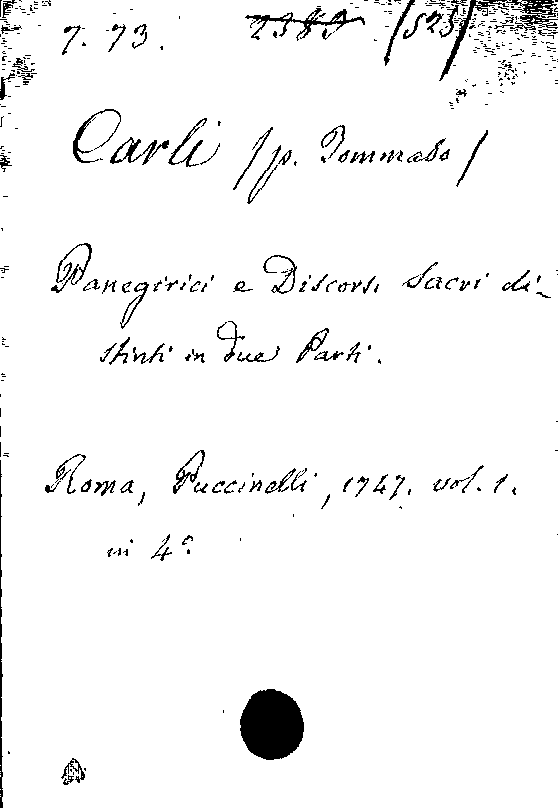 7. 73. 2383 /525/
Carli /p. Tommaso/
Panegirici e Discorsi Sacri di-
stinti in due Parti.
Roma, Puccinelli, 1747. vol. 1.
in 4º